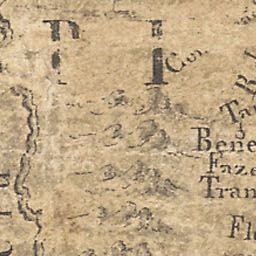 P I
Con
R
Ta
Bene
Faze
Tran
Fl